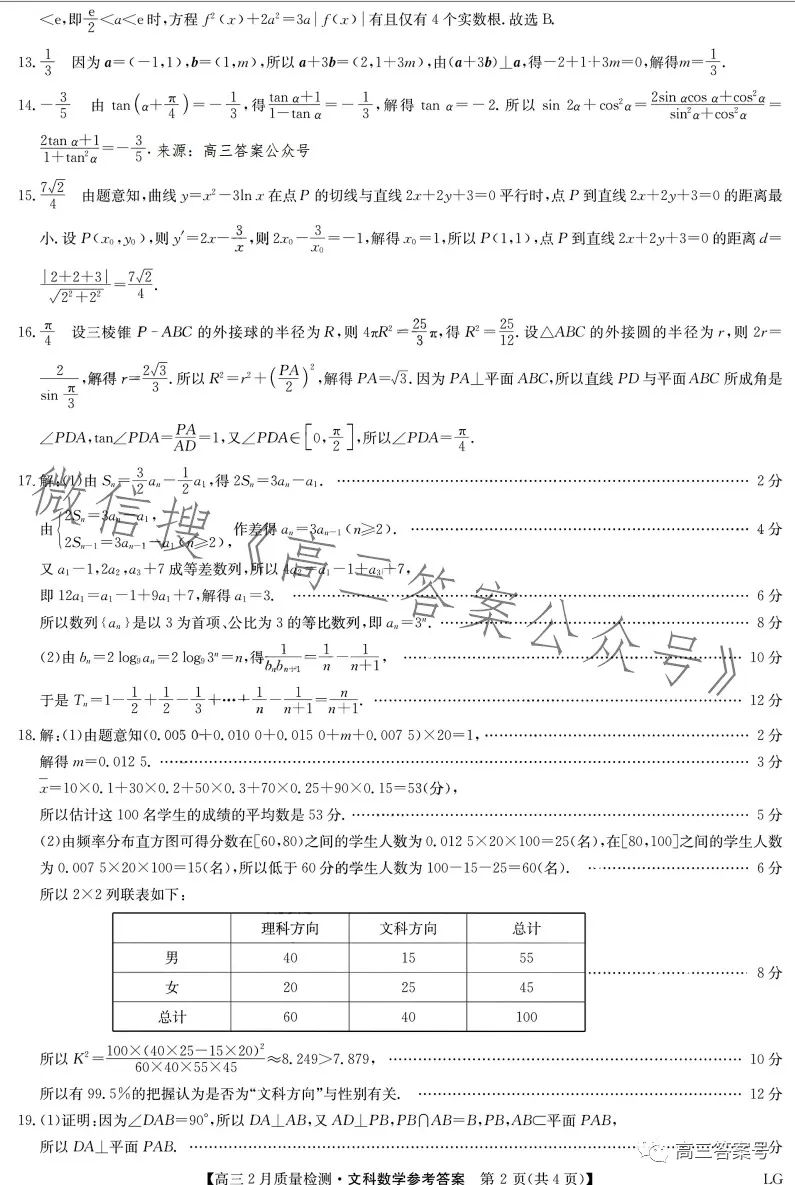 <e,即e/2<a<e时,方程 f²(x)+2a²=3a|f(x)|有且仅有4个实数根.故选B.
13. 1/3 因为a=(-1,1),b=(1,m),所以a+3b=(2,1+3m),由(a+3b)⊥a,得-2+1+3m=0,解得m=1/3.
14. -3/5 由 tan(α+π/4)=-1/3,得(tan α+1)/(1-tan α)=-1/3,解得 tan α=-2.所以 sin 2α+cos²α=(2sin αcos α+cos²α)/(sin²α+cos²α)=
(2tan α+1)/(1+tan²α)=-3/5.来源:高三答案公众号
15. 7√2/4 由题意知,曲线y=x²-3ln x在点P的切线与直线2x+2y+3=0平行时,点P到直线2x+2y+3=0的距离最
小.设P(x₀,y₀),则y′=2x-3/x,则2x₀-3/x₀=-1,解得x₀=1,所以P(1,1),点P到直线2x+2y+3=0的距离d=
|2+2+3|/√(2²+2²)=7√2/4.
16. π/4 设三棱锥P-ABC的外接球的半径为R,则4πR²=25/3π,得R²=25/12.设△ABC的外接圆的半径为r,则2r=
2/sin π/3,解得r=2√3/3.所以R²=r²+(PA/2)²,解得PA=√3.因为PA⊥平面ABC,所以直线PD与平面ABC所成角是
∠PDA,tan∠PDA=PA/AD=1,又∠PDA∈[0,π/2],所以∠PDA=π/4.
17.解:(1)由Sₙ=3/2aₙ-1/2a₁,得2Sₙ=3aₙ-a₁. …… 2分
由{2Sₙ=3aₙ-a₁, 2Sₙ₋₁=3aₙ₋₁-a₁(n≥2), 作差得aₙ=3aₙ₋₁(n≥2). …… 4分
又a₁-1,2a₂,a₃+7成等差数列,所以4a₂=a₁-1+a₃+7,
即12a₁=a₁-1+9a₁+7,解得a₁=3. …… 6分
所以数列{aₙ}是以3为首项、公比为3的等比数列,即aₙ=3ⁿ. …… 8分
(2)由bₙ=2 log₉aₙ=2 log₉3ⁿ=n,得1/(bₙbₙ₊₁)=1/n-1/(n+1), …… 10分
于是Tₙ=1-1/2+1/2-1/3+…+1/n-1/(n+1)=n/(n+1). …… 12分
18.解:(1)由题意知(0.005 0+0.010 0+0.015 0+m+0.007 5)×20=1, …… 2分
解得m=0.012 5. …… 3分
x̄=10×0.1+30×0.2+50×0.3+70×0.25+90×0.15=53(分),
所以估计这100名学生的成绩的平均数是53分. …… 5分
(2)由频率分布直方图可得分数在[60,80)之间的学生人数为0.012 5×20×100=25(名),在[80,100]之间的学生人数
为0.007 5×20×100=15(名),所以低于60分的学生人数为100-15-25=60(名). …… 6分
所以2×2列联表如下:
理科方向 文科方向 总计
男 40 15 55
女 20 25 45
总计 60 40 100
…… 8分
所以K²=100×(40×25-15×20)²/(60×40×55×45)≈8.249>7.879, …… 10分
所以有99.5%的把握认为是否为“文科方向”与性别有关. …… 12分
19.(1)证明:因为∠DAB=90°,所以DA⊥AB,又AD⊥PB,PB∩AB=B,PB,AB⊂平面PAB,
所以DA⊥平面PAB. …… 分
【高三2月质量检测·文科数学参考答案 第2页(共4页)】 LG
微信搜《高三答案公众号》
高三答案号